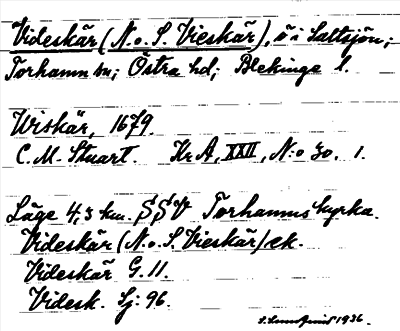 Videskär (N. o. S. Vieskär), ö i Saltsjön;
Torhamn sn; Östra hd; Blekinge l.
Wiskär, 1679
C. M. Stuart. Kr A, XXII, N:o 30. 1.
Läge 4,3 km. SSV Torhamns kyrka.
Videskär (N. o. S. Vieskär) ek.
Videskär G. 11.
Videsk. Sj: 96.
1936.